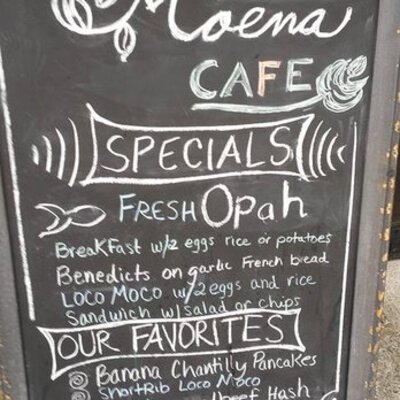 Moena
CAFE
SPECIALS
FRESH Opah
Breakfast w/2 eggs rice or potatoes
Benedicts on garlic French bread
LOCO MOCO w/2 eggs and rice
Sandwich w/salad or chips
OUR FAVORITES
Banana Chantilly Pancakes
ShortRib Loco Moco
Hash